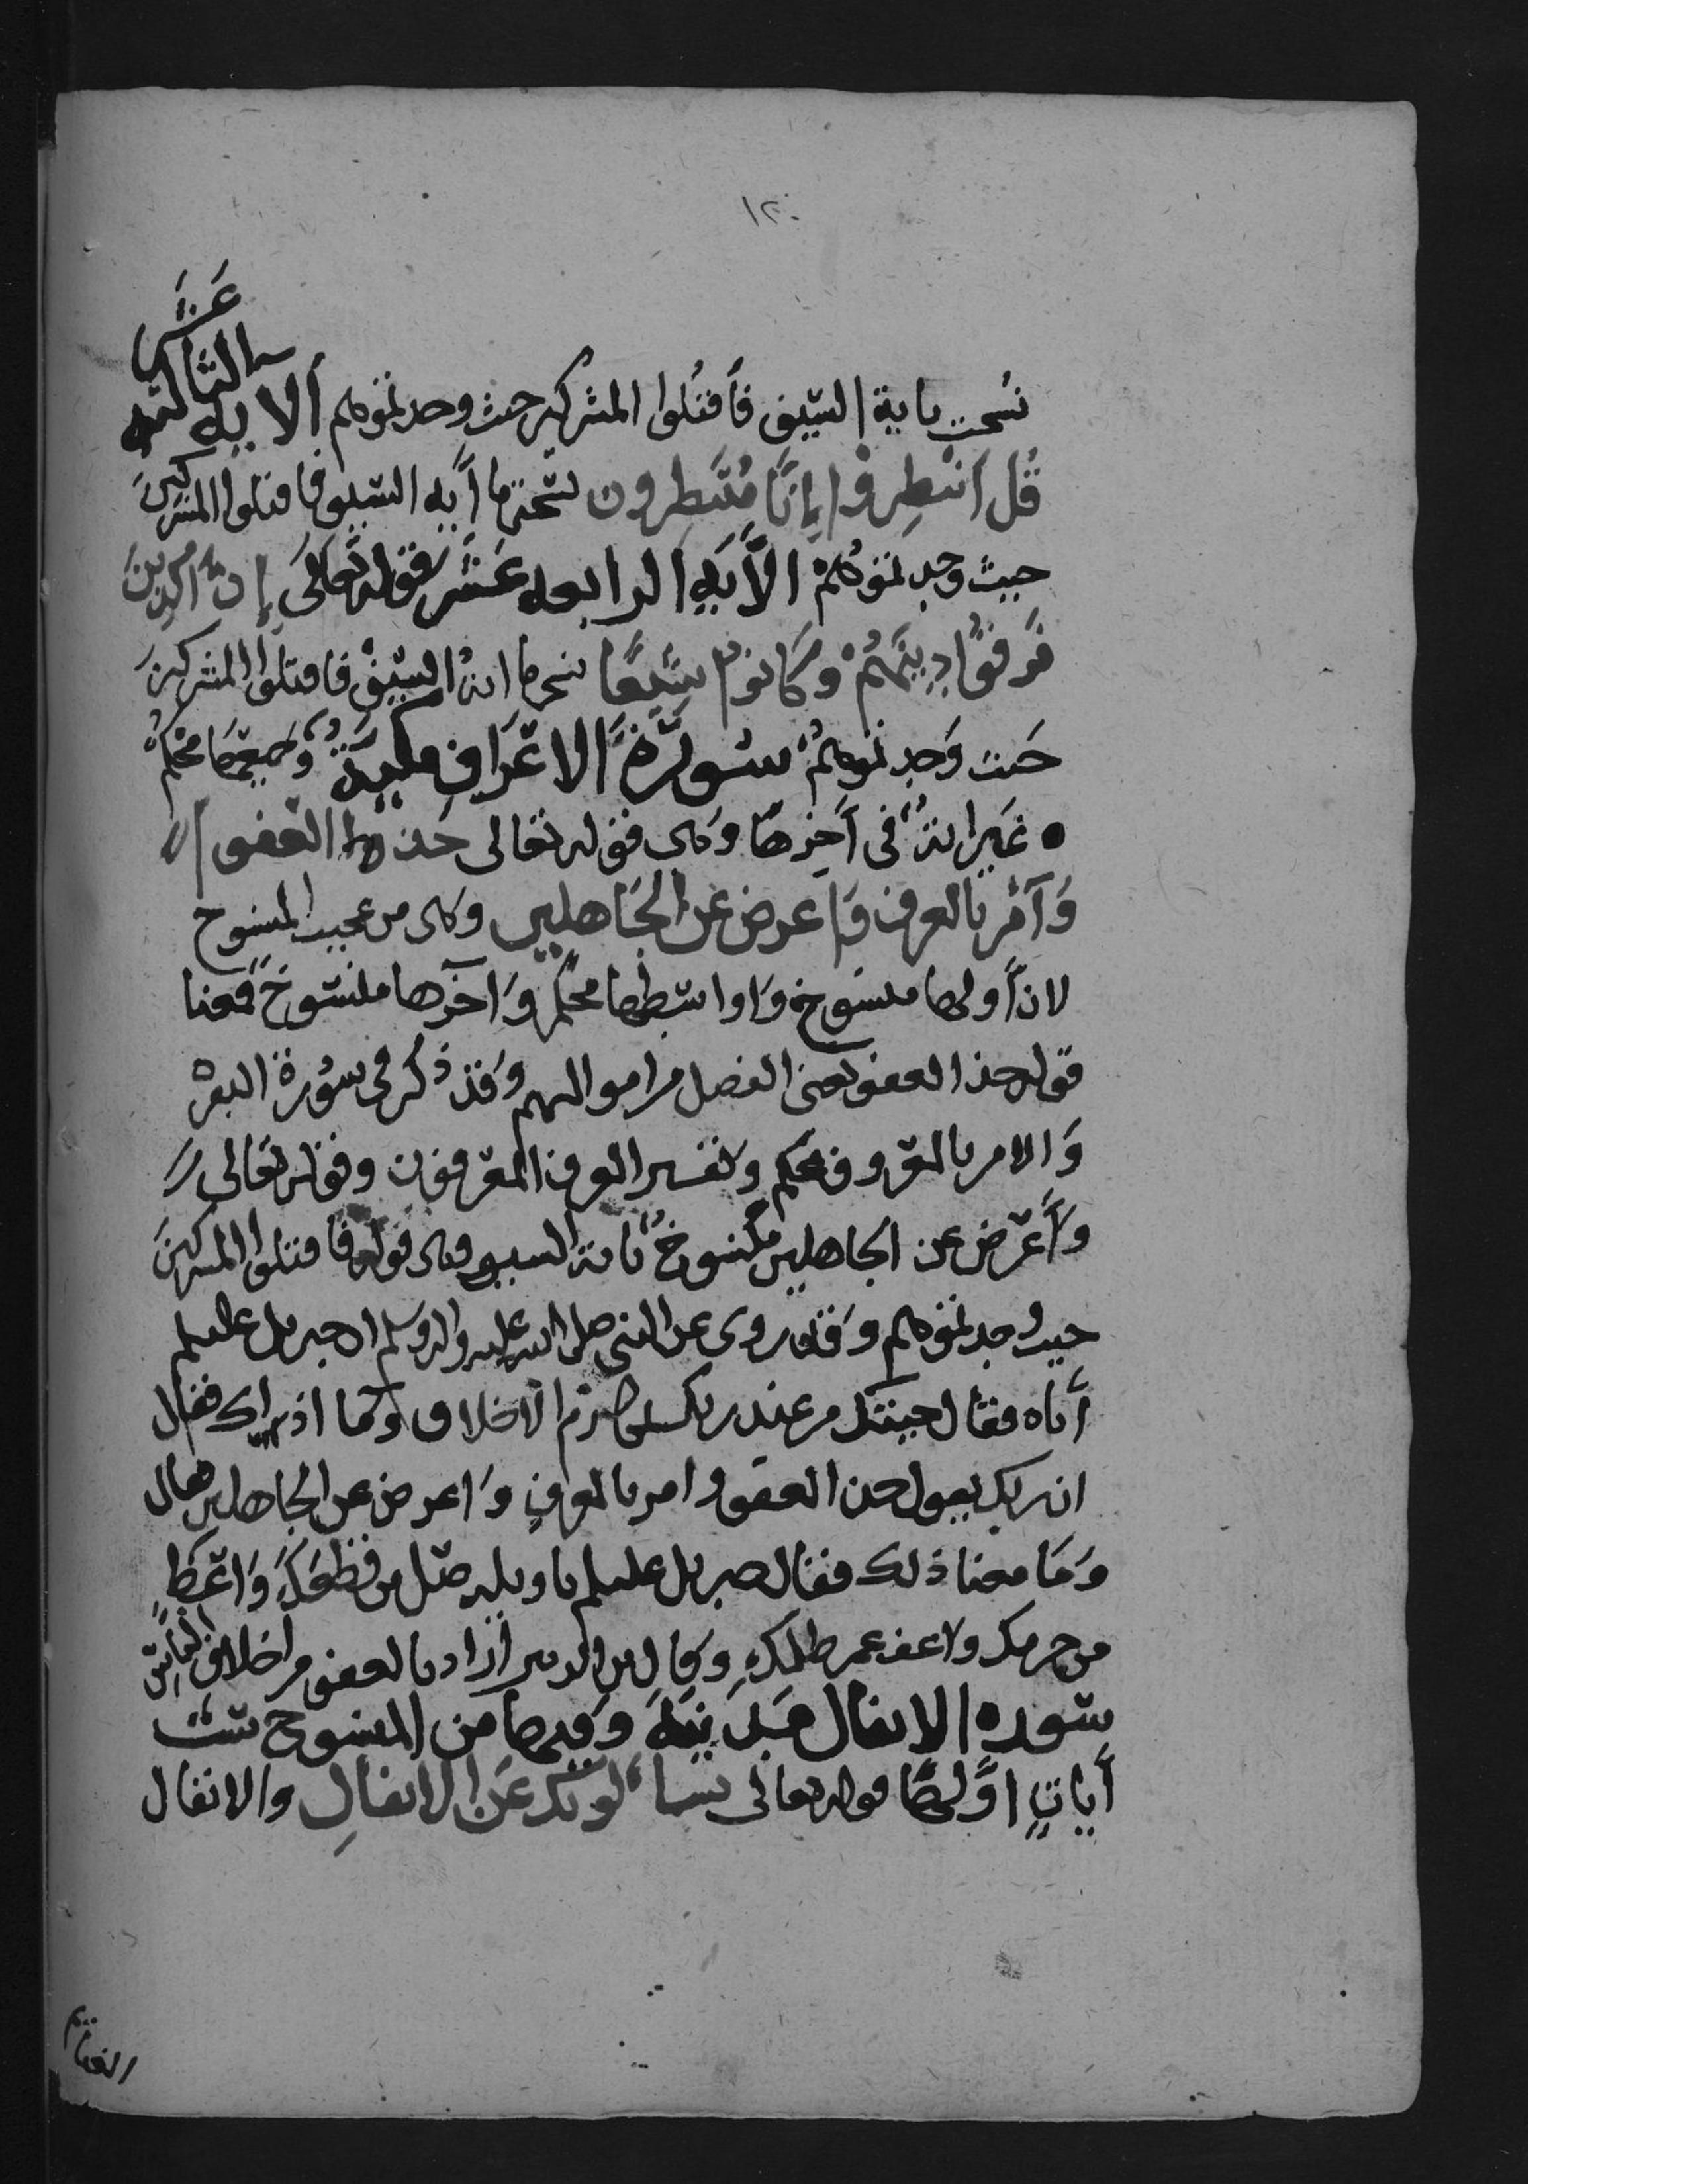 ١٢٠
نسخت باية السيف فأقتلوا المشركين حيث وجدتموهم ألاية الثالثه عشر
قل انتظروا إنا منتظرون نسختها أيه السيف فاقتلوا المشركين
حيث وجدتموهم الأيه الرابعه عشر قوله تعالى إن الذين
فرقوا دينهم وكانوا شيعا نسخها اية السيف فاقتلوا المشركين
حيث وجدتموهم سورة الاعراف مكية وجميعها محكم
ه غير اية في آخرها وهي قوله تعالى خذ العفو
وأمر بالعرف وإعرض عن الجاهلين وهي من عجيب المنسوخ
لان أولها منسوخ واواسطها محكم وآخرها منسوخ فمعنا
قوله خذ العفو يعني الفضل من اموالهم وقد ذكر في سورة البقره
والامر بالمعروف محكم وتفسير العرف المعروف وقوله تعالى
وأعرض عن الجاهلين منسوخ باية السيف وهي قوله فاقتلوا المشركين
حيث وجدتموهم وقد روي عن النبي صلى الله عليه واله وسلم ان جبريل عليلم
أتاه فقال جيتك من عند ربك بمكارم الاخلاق وما اذراك فقال
ان ربك يقول خذ العفو وامر بالعرف واعرض عن الجاهلين فقال
وما معنا ذلك فقال جبريل عليلم تاويله صل من قطعك واعط
من حرمك واعف عمن ظلمك وقال ابن الزبير أراد بالعفو من اخلاق الناس
سوره الانفال مدنية وفيها من المنسوخ ست
أيات اولها قوله تعالى يسألونك عن الانفال والانفال
الغنايم